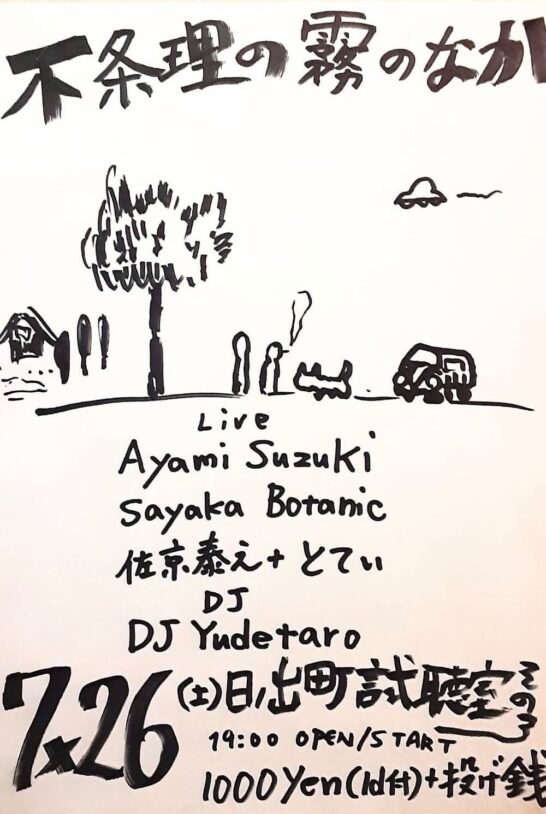 不条理の霧のなか
Live
Ayami Suzuki
Sayaka Botanic
佐京泰之+とてい
DJ
DJ Yudetaro
7×26(土)日ノ出町試聴室その3
19:00 OPEN/START
1000Yen(1d付)+投げ銭